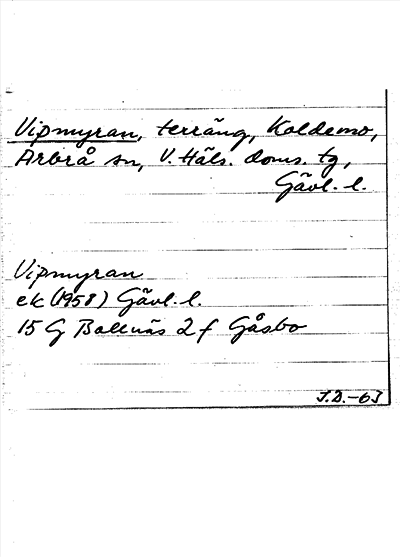 Vipmyran, terräng, Koldemo,
Arbrå sn, V. Häls. doms. tg,
Gävl. l.
Vipmyran
ek (1958) Gävl. l.
15 G Bollnäs 2 f Gåsbo
J.D.-63